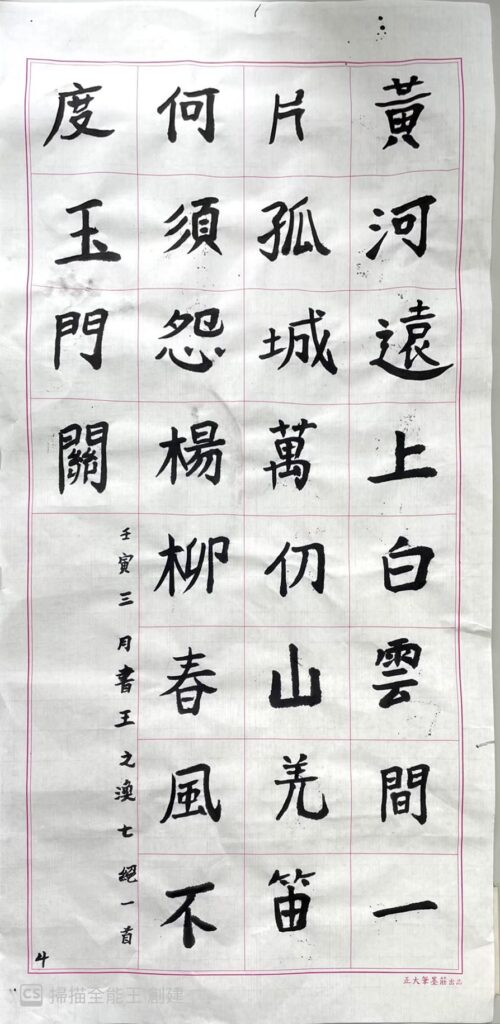 黃河遠上白雲間一
片孤城萬仞山羌笛
何須怨楊柳春風不
度玉門關
壬寅三月書王之渙七絕一首
4
正大筆墨莊出品
CS 掃描全能王 創建